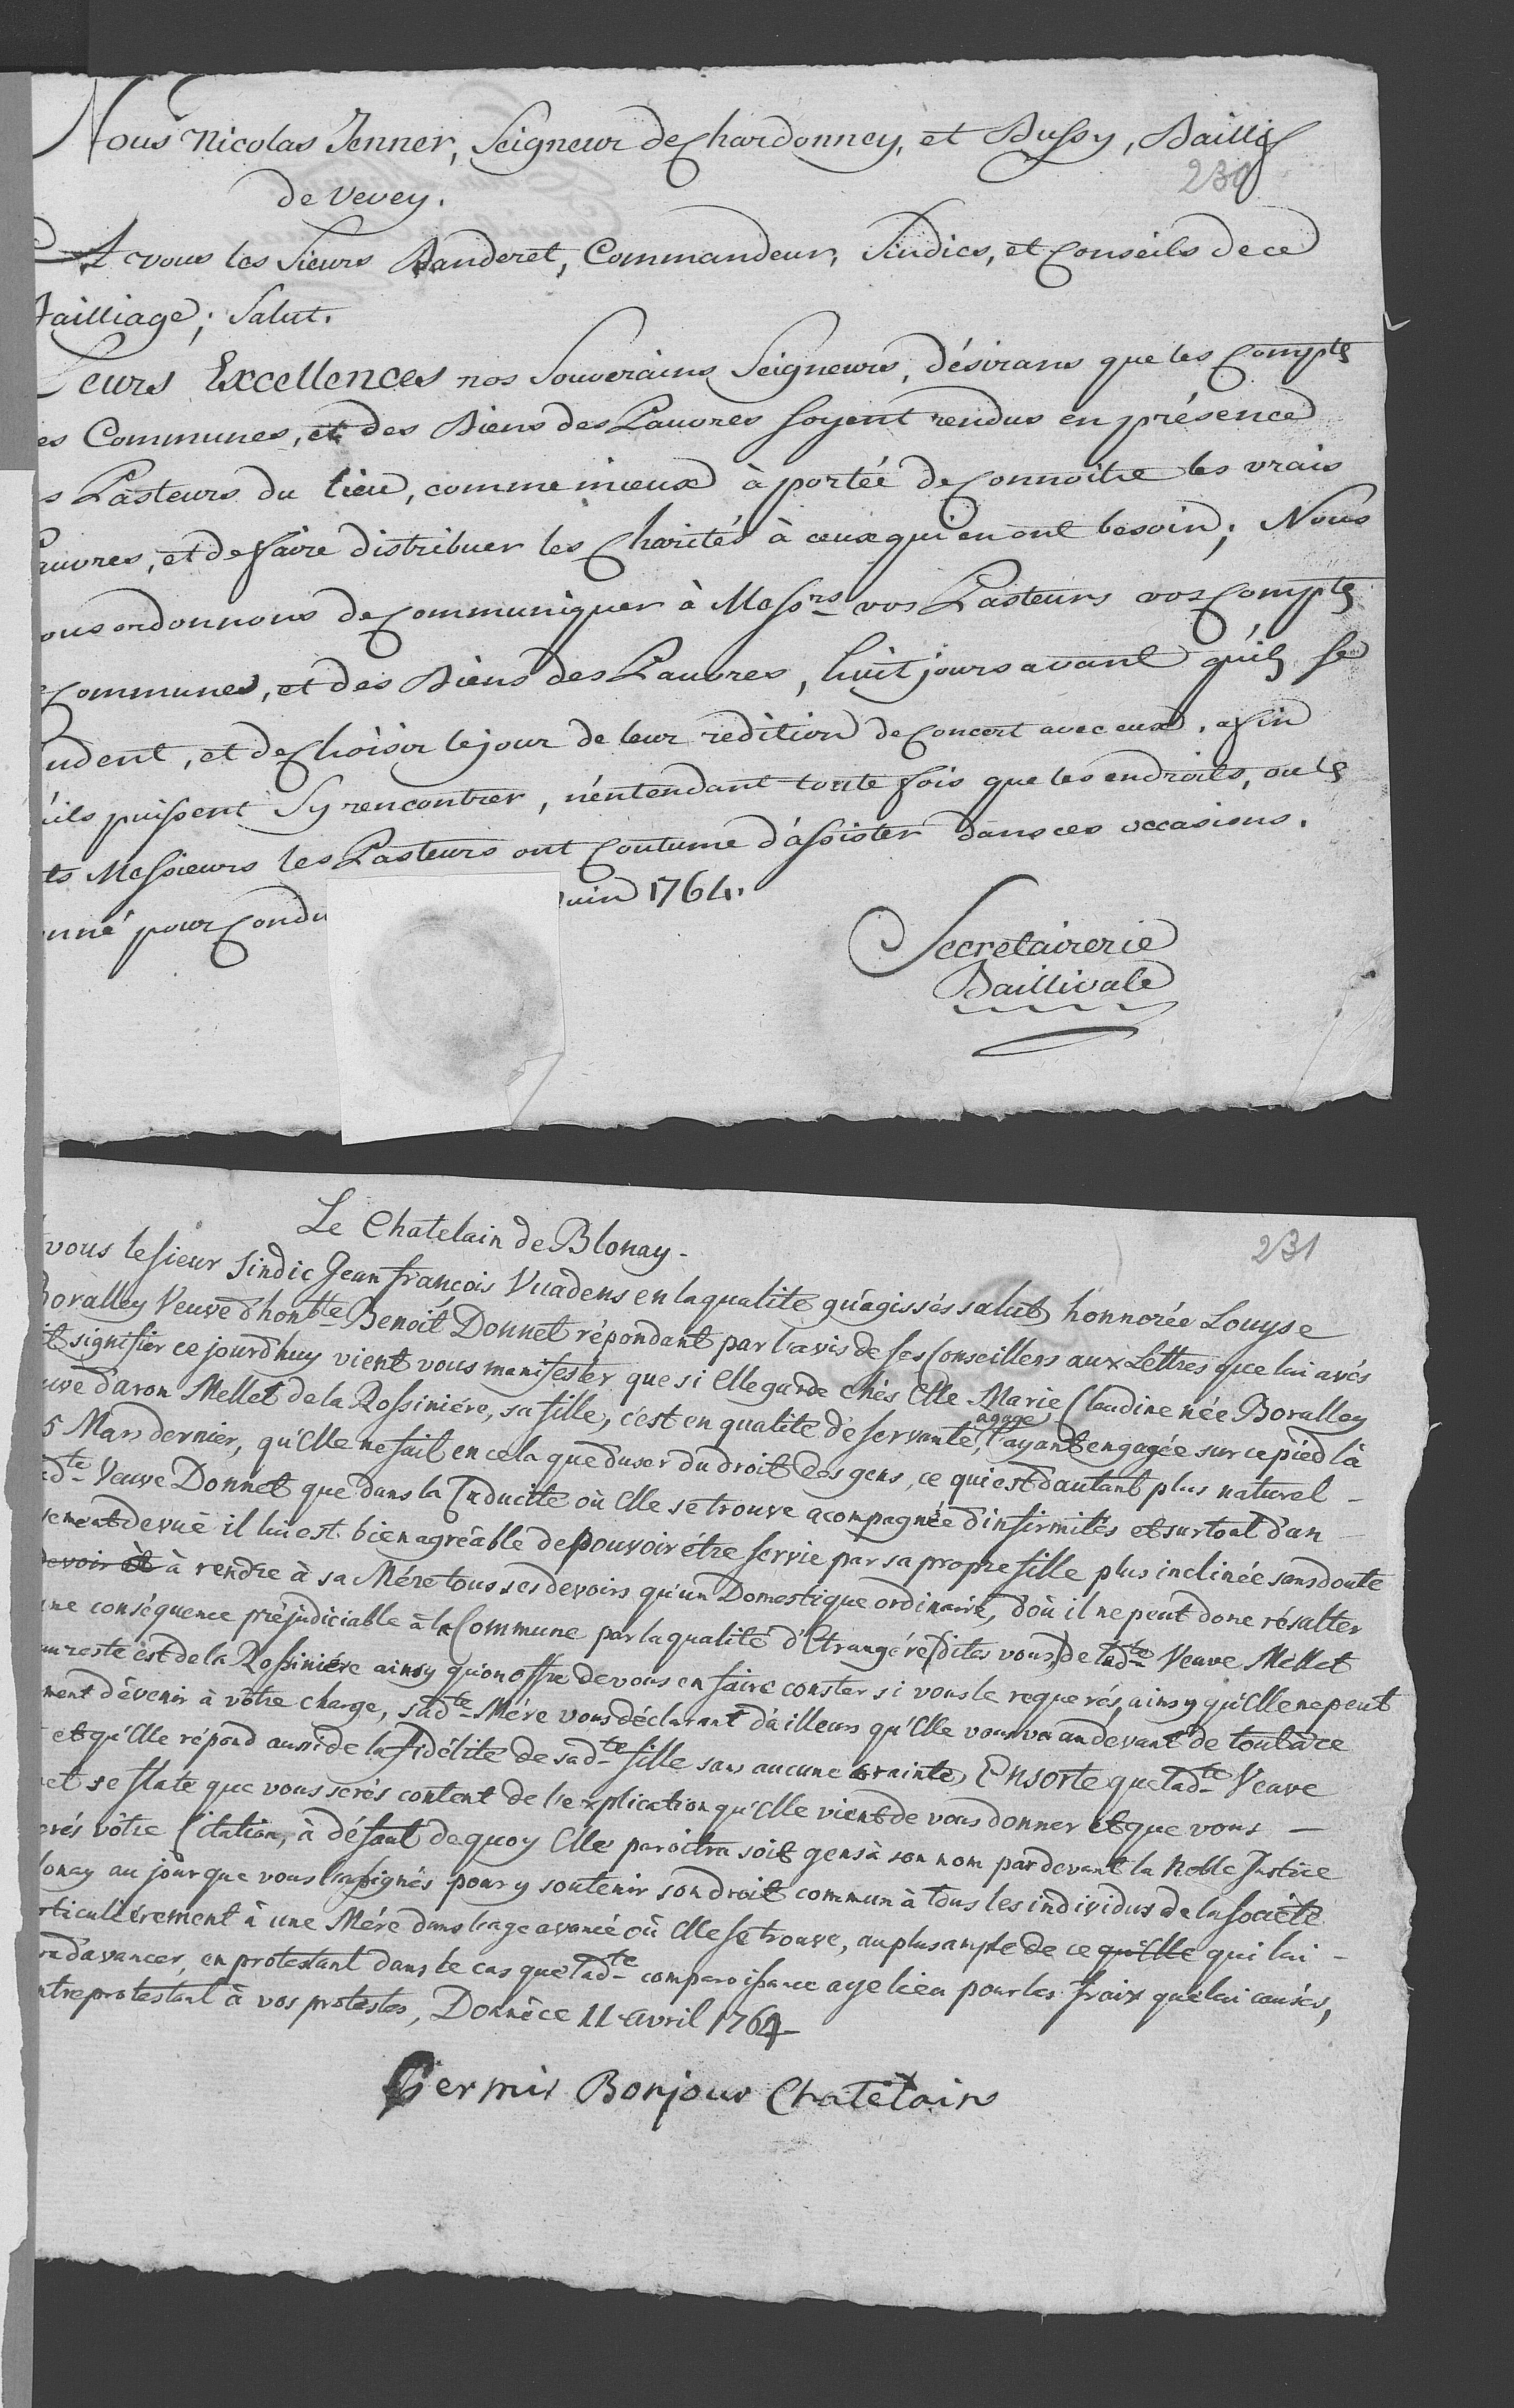 Nous Nicolas Jenner, Seigneur de Chardonney, et Bussy, Baillif
230
de Vevey.
A vous les Sieurs Banderet, Commandeur, Sindics, et Conseils de ce
Bailliage; Salut.
Leurs Excellences nos Souverains Seigneurs, désirans que les Comptes
es Communes, et des Biens des Pauvres soyent rendus en présence
s Pasteurs du lieu, comme mieux à portée de Connoitre les vrais
auvres, et de faire distribuer les Charités à ceux qui en ont besoin; Nous
ous ordonnons de Communiquer à Messrs vos Pasteurs vos Comptes
Communes, et des Biens des Pauvres, huit jours avant qu'ils se
ndent, et de Choisir le jour de leur rédition de Concert avec eux, afin
u'ils puissent s'y rencontrer, n'entendant toute fois que les endroits, ou les
ts Messieurs les Pasteurs ont Coutume d'assister dans ces occasions.
onné pour Condu uin 1764.
Secretairerie
Baillivale
Le Chatelain de Blonay.
231
vous le sieur Sindic Jean francois Vuadens en la qualité qu'agissés salut, honnorée Louyse
Boralley Veuve d'honble Benoit Donnet répondant par l'avis de ses Conseillers aux Lettres que lui avés
it signifier ce jourd'huy vient vous manifester que si Elle garde chés Elle Marie Claudine née Boralley
uve d'aron Mellet de la Rossiniére, sa fille, c'est en qualité de servante agage, l'ayant engagée sur ce pied là
5 Mars dernier, qu'Elle ne fait en cela que d'user du droit des gens, ce qui est d'autant plus naturel -
dte Veuve Donnet que dans la Caducité où Elle se trouve acompagnée d'infirmités et surtout d'un
sement de vuë il lui est bien agréable de pouvoir étre servie par sa propre fille plus inclinée sans doute
devoir et à rendre à sa Mére tous ses devoirs qu'un Domestique ordinaire, d'où il ne peut donc résulter
une conséquence préjudiciable à la Commune par la qualité d'Etrangére (dites vous) de ladte Veuve Mellet
au reste est de la Rossiniére ainsy qu'on offre de vous en faire conster si vous le requerés, ainsy qu'Elle ne peut
ment dévenir à vôtre charge, sadte Mére vous déclarant d'ailleurs qu'Elle vous va au devant de tout à ce
et qu'Elle répond aussi de la fidélité de sadte fille sans aucune crainte, Ensorte que ladte Veuve
et se flate que vous serés content de l'explication qu'Elle vient de vous donner et que vous -
rés vôtre Citation, à défaut de quoy Elle paroitra soit gens à son nom par devant la Noble Justice
lonay au jour que vous l'assignés pour y soutenir son droit commun à tous les individus de la société
rticuliérement à une Mére dans l'age avancé où Elle se trouve, au plus ample de ce qu'Elle qui lui -
ra d'avancer, en protestant dans le cas que ladte comparoissance aye lieu pour les fraix que lui causés,
ntreprotestant à vos protestes, Donné ce 11 avril 1764
Permis Bonjour Chatelain